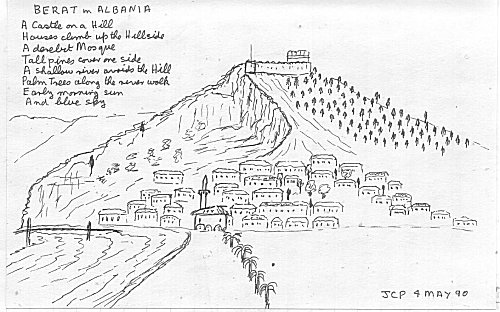 BERAT in ALBANIA
A Castle on a Hill
Houses climb up the Hillside
A derelict Mosque
Tall pines cover one side
A shallow river avoids the Hill
Palm Trees along the river walk
Early morning sun
And blue sky
JCP 4 MAY 90